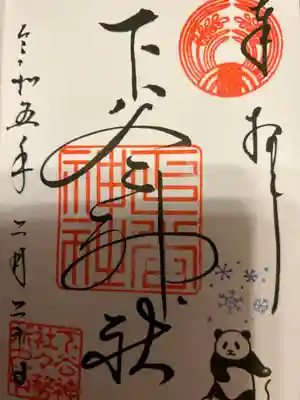 奉拝
下谷神社
下谷神社
令和五年二月二十日
下谷神社社務所